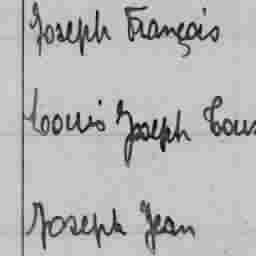 Joseph François
Louis Joseph
Joseph Jean